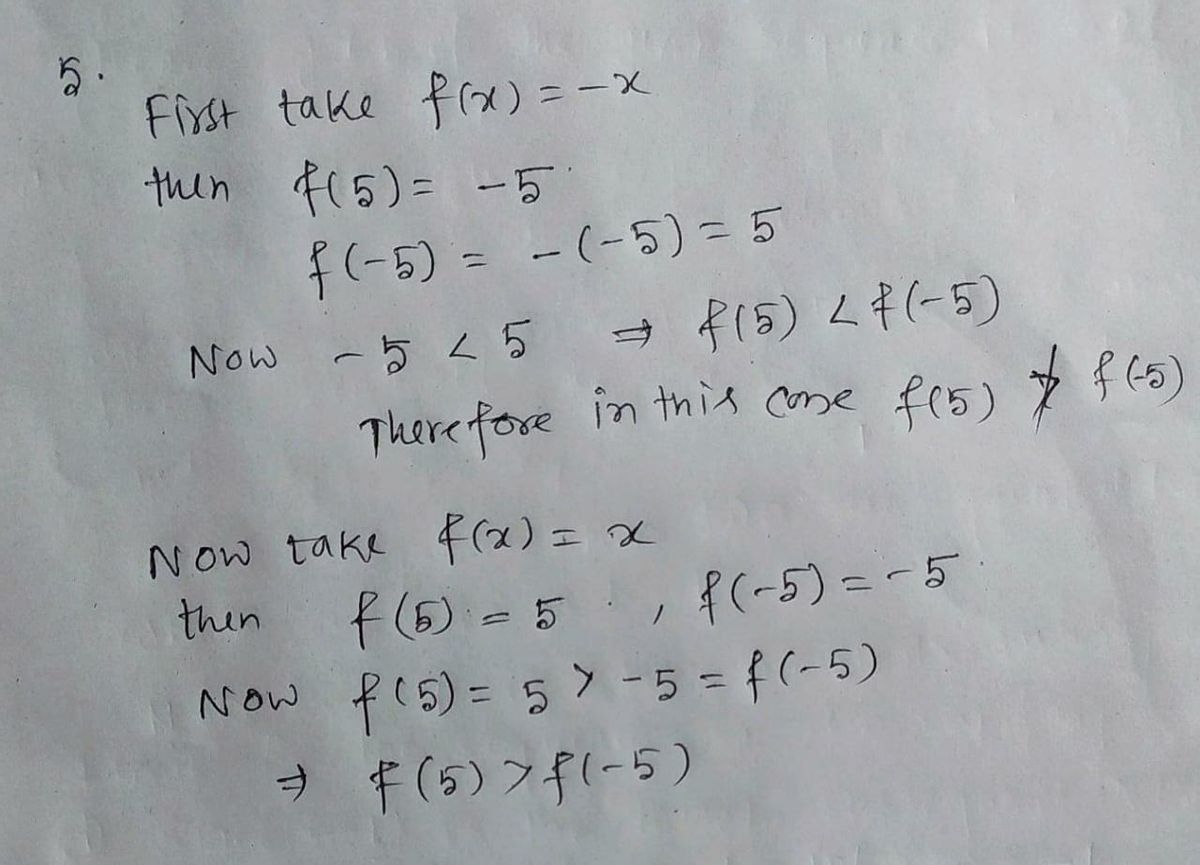 5.
First take f(x) = -x
then f(5) = -5
f(-5) = -(-5) = 5
Now -5 < 5 ⇒ f(5) < f(-5)
Therefore in this case f(5) ≯ f(-5)
Now take f(x) = x
then f(5) = 5 , f(-5) = -5
Now f(5) = 5 > -5 = f(-5)
⇒ f(5) > f(-5)